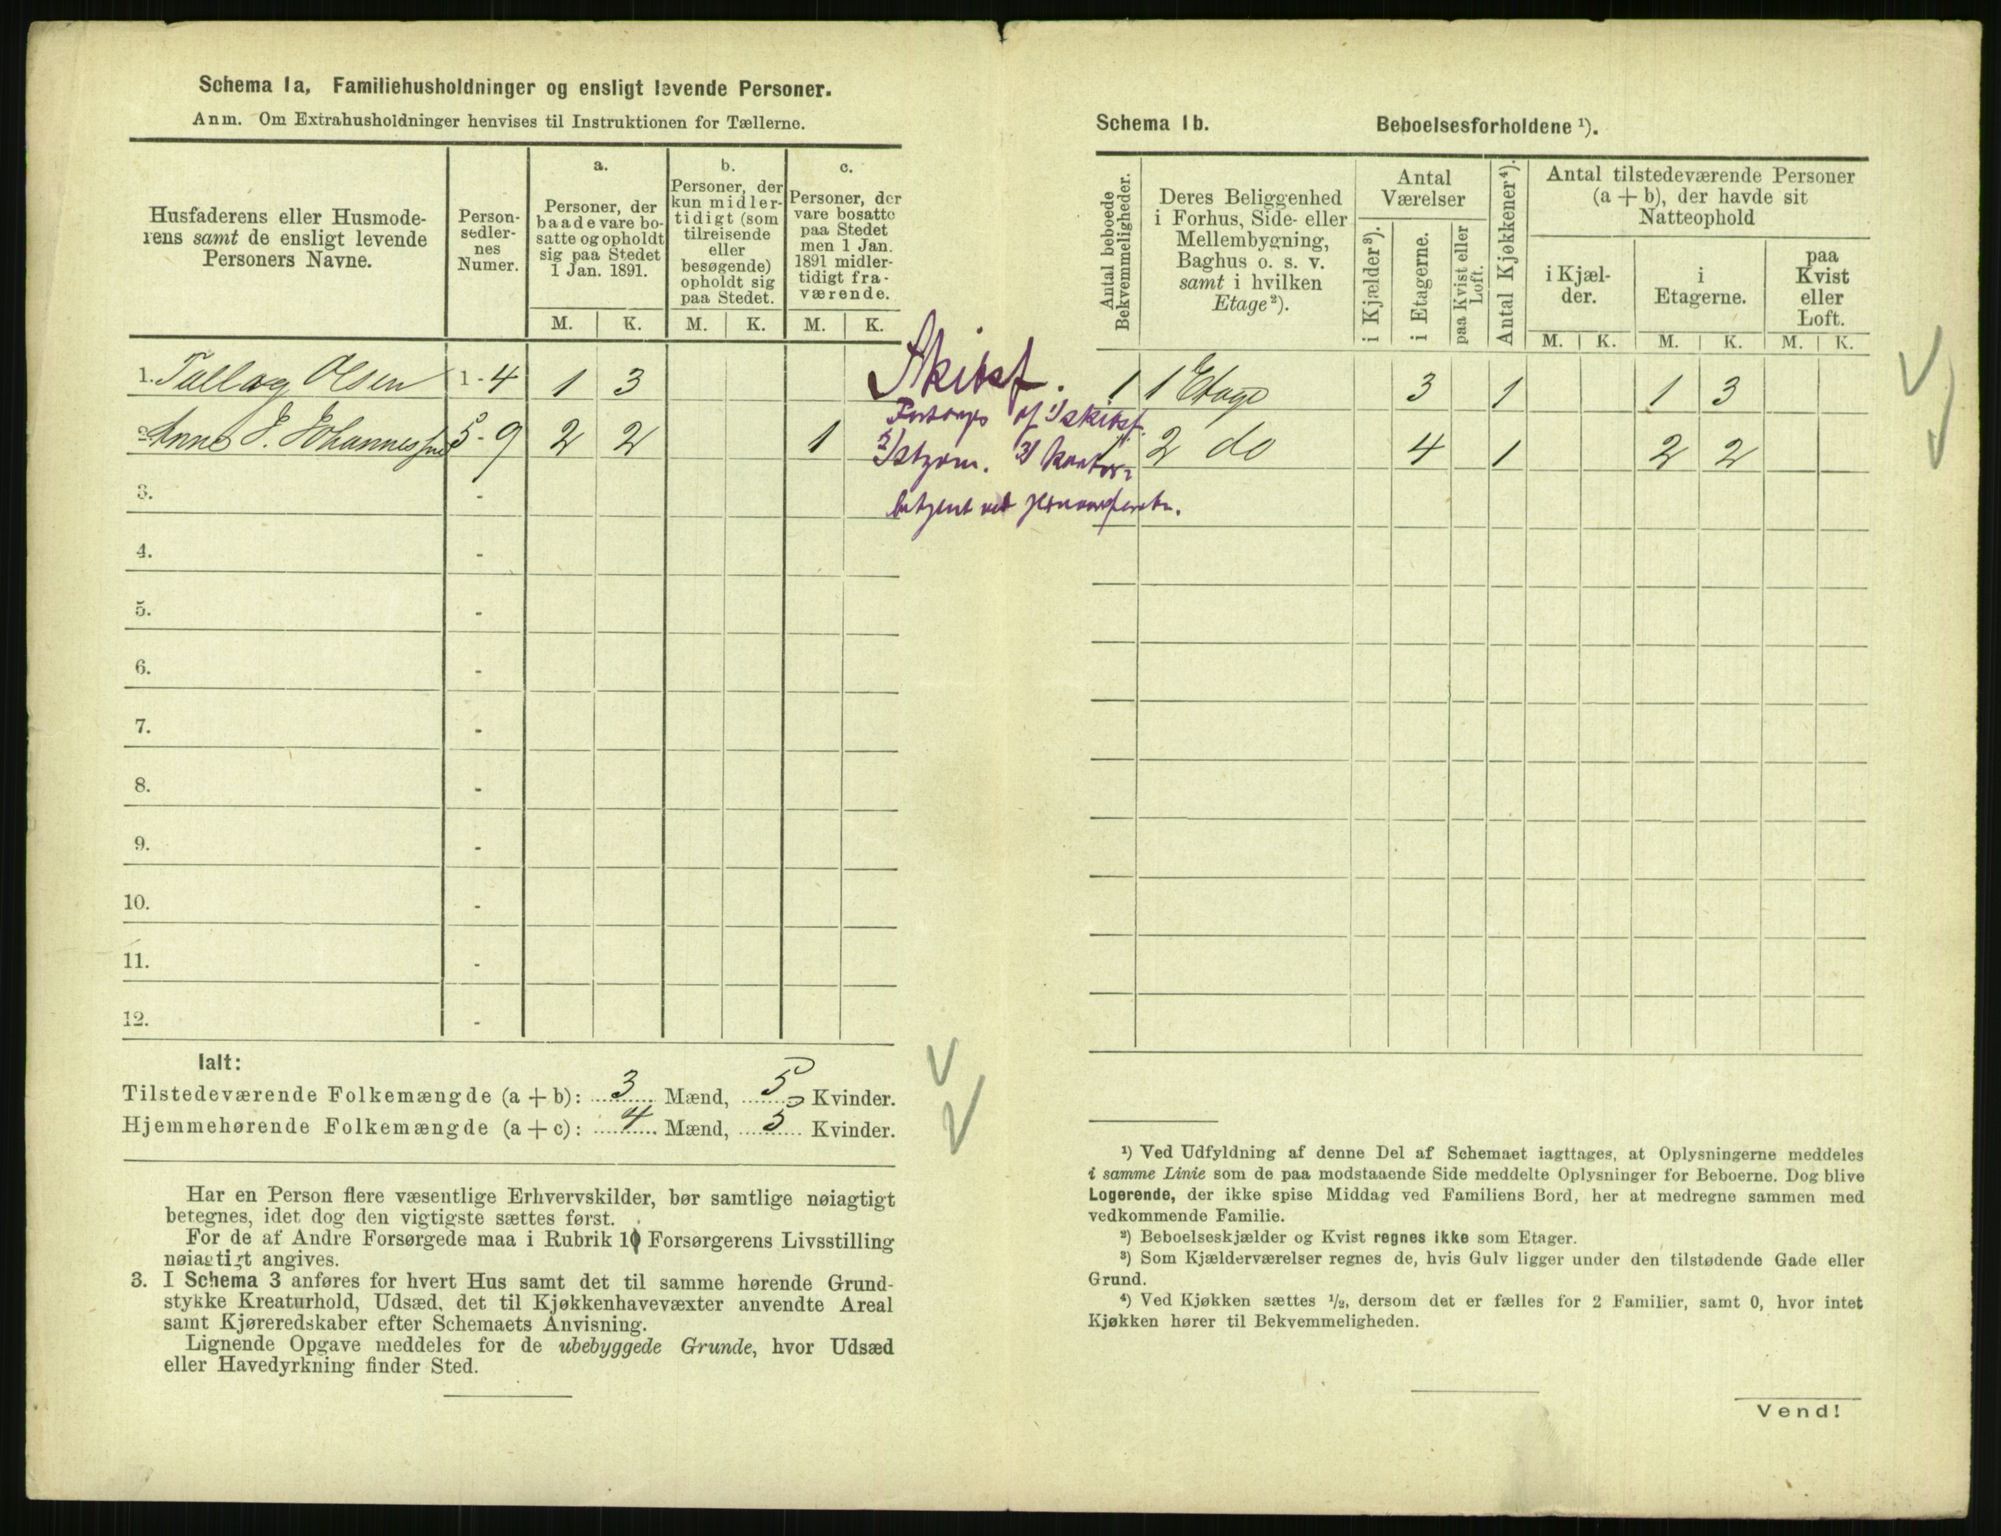 Schema 1a, Familiehusholdninger og ensligt levende Personer.
Anm. Om Extrahusholdninger henvises til Instruktionen for Tællerne.
Husfaderens eller Husmode-
rens samt de ensligt levende
Personers Navne.
Person-
sedler-
nes
Numer.
a.
Personer, der
baade vare bo-
satte og opholdt
sig paa Stedet
1 Jan. 1891.
b.
Personer, der
kun midler-
tidigt (som
tilreisende
eller
besøgende)
opholdt sig
paa Stedet.
c.
Personer, der
vare bosatte
paa Stedet
men 1 Jan.
1891 midler-
tidigt fra-
værende.
M. K. M. K. M. K.
1. Tallag Olsen 1 - 4 1 3
2. Anne E. Johannessen 5 - 9 2 2 1
3. -
4. -
5. -
6. -
7. -
8. -
9. -
10. -
11. -
12. -
Ialt:
Tilstedeværende Folkemængde (a + b): 3 Mænd, 5 Kvinder.
Hjemmehørende Folkemængde (a + c): 4 Mænd, 5 Kvinder.
Har en Person flere væsentlige Erhvervskilder, bør samtlige nøiagtigt
betegnes, idet dog den vigtigste sættes først.
For de af Andre Forsørgede maa i Rubrik 10 Forsørgerens Livsstilling
nøiagtigt angives.
3. I Schema 3 anføres for hvert Hus samt det til samme hørende Grund-
stykke Kreaturhold, Udsæd, det til Kjøkkenhavevæxter anvendte Areal
samt Kjøreredskaber efter Schemaets Anvisning.
Lignende Opgave meddeles for de ubebyggede Grunde, hvor Udsæd
eller Havedyrkning finder Sted.
Skibsf.
af 1) skibsf.
2) 3)
ved
Schema 1b. Beboelsesforholdene ¹).
Antal beboede
Bekvemmeligheder.
Deres Beliggenhed
i Forhus, Side- eller
Mellembygning,
Baghus o. s. v.
samt i hvilken
Etage²).
Antal
Værelser
i Kjælder³).
i Etagerne.
paa Kvist eller
Loft.
Antal Kjøkkener⁴).
Antal tilstedeværende Personer
(a + b), der havde sit
Natteophold
i Kjæl-
der.
i
Etagerne.
paa
Kvist
eller
Loft.
M. K. M. K. M. K.
1 1 Etage 3 1 1 3
1 2 do 4 1 2 2
¹) Ved Udfyldning af denne Del af Schemaet iagttages, at Oplysningerne meddeles
i samme Linie som de paa modstaaende Side meddelte Oplysninger for Beboerne. Dog blive
Logerende, der ikke spise Middag ved Familiens Bord, her at medregne sammen med
vedkommende Familie.
²) Beboelseskjælder og Kvist regnes ikke som Etager.
³) Som Kjælderværelser regnes de, hvis Gulv ligger under den tilstødende Gade eller
Grund.
⁴) Ved Kjøkken sættes ½, dersom det er fælles for 2 Familier, samt 0, hvor intet
Kjøkken hører til Bekvemmeligheden.
Vend!